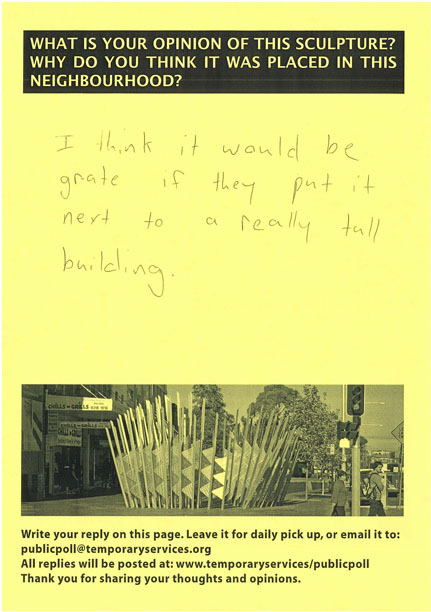 WHAT IS YOUR OPINION OF THIS SCULPTURE?
WHY DO YOU THINK IT WAS PLACED IN THIS
NEIGHBOURHOOD?
I think it would be
grate if they put it
next to a really tall
building.
CHILLS N GRILLS
Write your reply on this page. Leave it for daily pick up, or email it to:
publicpoll@temporaryservices.org
All replies will be posted at: www.temporaryservices/publicpoll
Thank you for sharing your thoughts and opinions.